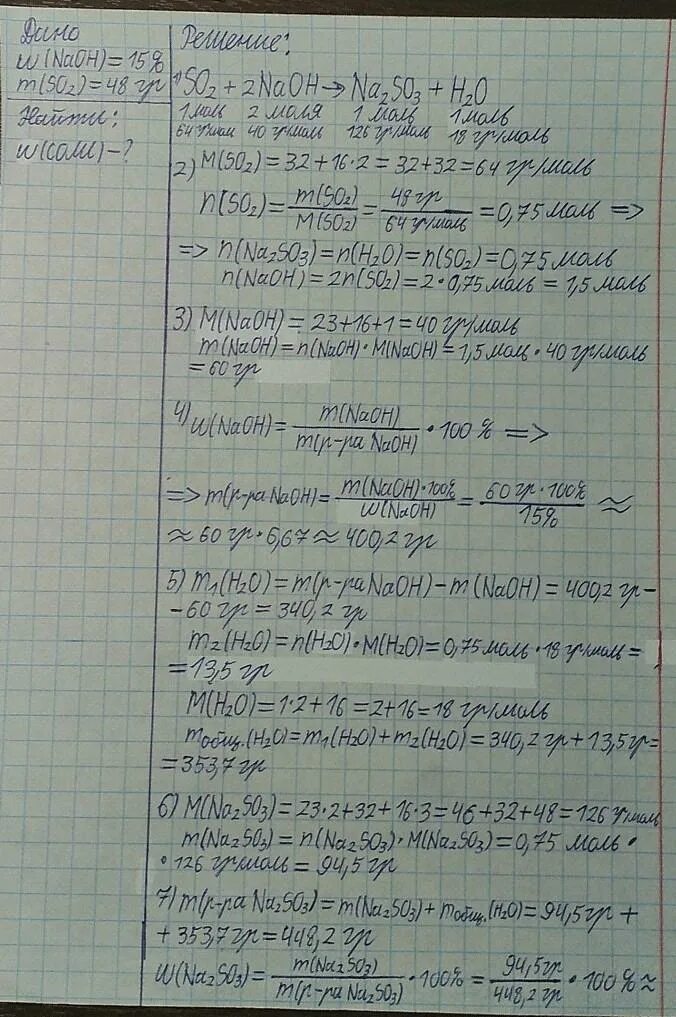 Дано
w(NaOH)=15%
m(SO₂)=48 гр
Найти:
w(соли)-?
Решение:
1) SO₂ + 2NaOH → Na₂SO₃ + H₂O
1 моль 2 моля 1 моль 1 моль
64 гр/мол 40 гр/моль 126 гр/моль 18 гр/моль
2) M(SO₂) = 32 + 16·2 = 32+32 = 64 гр/моль
n(SO₂) = m(SO₂)/M(SO₂) = 48 гр/64 гр/моль = 0,75 моль =>
=> n(Na₂SO₃) = n(H₂O) = n(SO₂) = 0,75 моль
n(NaOH) = 2n(SO₂) = 2·0,75 моль = 1,5 моль
3) M(NaOH) = 23+16+1 = 40 гр/моль
m(NaOH) = n(NaOH)·M(NaOH) = 1,5 моль·40 гр/моль
= 60 гр
4) w(NaOH) = m(NaOH)/m(р-ра NaOH) · 100 % =>
=> m(р-ра NaOH) = m(NaOH)·100%/w(NaOH) = 60 гр·100%/15% ≈
≈ 60 гр·6,67 ≈ 400,2 гр
5) m₁(H₂O) = m(р-ра NaOH) - m(NaOH) = 400,2 гр -
- 60 гр = 340,2 гр
m₂(H₂O) = n(H₂O)·M(H₂O) = 0,75 моль·18 гр/моль =
= 13,5 гр
M(H₂O) = 1·2+16 = 2+16 = 18 гр/моль
mобщ.(H₂O) = m₁(H₂O) + m₂(H₂O) = 340,2 гр + 13,5 гр =
= 353,7 гр
6) M(Na₂SO₃) = 23·2+32+16·3 = 46+32+48 = 126 гр/моль
m(Na₂SO₃) = n(Na₂SO₃)·M(Na₂SO₃) = 0,75 моль ·
· 126 гр/моль = 94,5 гр
7) m(р-ра Na₂SO₃) = m(Na₂SO₃) + mобщ.(H₂O) = 94,5 гр +
+ 353,7 гр = 448,2 гр
w(Na₂SO₃) = m(Na₂SO₃)/m(р-ра Na₂SO₃) · 100% = 94,5 гр/448,2 гр · 100 % ≈